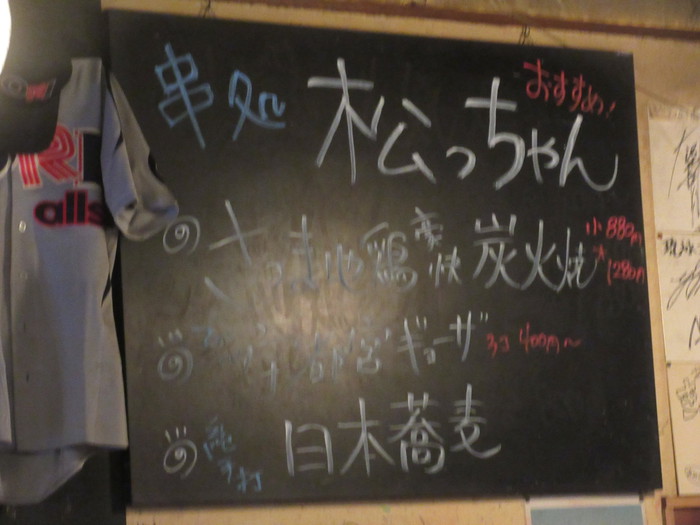 おすすめ!
串処 松っちゃん
さつま地鶏 豪快 炭火焼 小880円
大1280円
都宮ギョーザ 3コ 400円〜
手打 日本蕎麦
alls